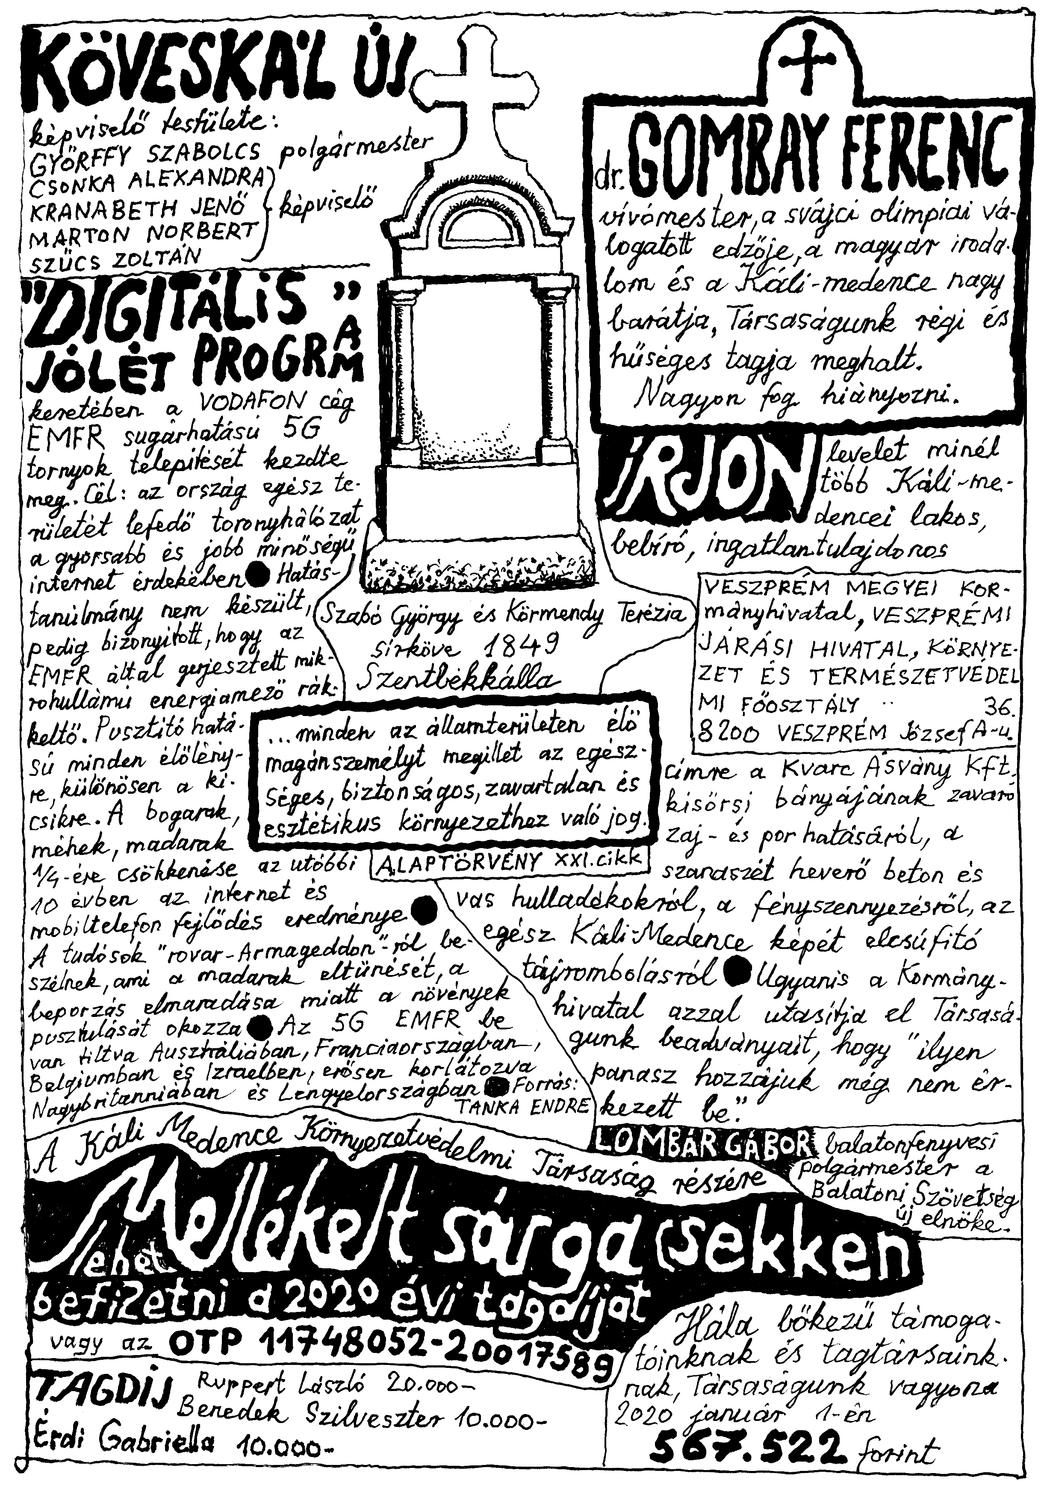 KÖVESKÁL ÚJ
képviselő testülete:
GYÖRFFY SZABOLCS polgármester
CSONKA ALEXANDRA
KRANABETH JENŐ
MARTON NORBERT
SZŰCS ZOLTÁN
képviselő
"DIGITÁLIS
JÓLÉT PROGRAM"
keretében a VODAFON cég
EMFR sugárhatású 5G
tornyok telepítését kezdte
meg. Cél: az ország egész te-
rületét lefedő toronyhálózat
a gyorsabb és jobb minőségű
internet érdekében ● Hatás-
tanúlmány nem készült,
pedig bizonyított, hogy az
EMFR által gerjesztett mik-
rohullámú energiamező rák-
keltő. Pusztító hatá-
sú minden élőlény-
re, különösen a ki-
csikre. A bogarak,
méhek, madarak
1/4-ére csökkenése az utóbbi
10 évben az internet és
mobiltelefon fejlődés eredménye ●
A tudósok "rovar-Armageddon"-ról be-
szélnek, ami a madarak eltűnését, a
beporzás elmaradása miatt a növények
pusztulását okozza ● Az 5G EMFR be
van tiltva Ausztráliában, Franciaországban,
Belgiumban és Izraelben, erősen korlátozva
Nagybritanniában és Lengyelországban ● Forrás:
TANKA ENDRE
Szabó György és Körmendy Terézia
sírköve 1849
Szentbékkálla
...minden az államterületen élő
magánszemélyt megillet az egész-
séges, biztonságos, zavartalan és
esztétikus környezethez való jog.
ALAPTÖRVÉNY XXI.cikk
dr. GOMBAY FERENC
vívómester, a svájci olimpiai vá-
logatott edzője, a magyar iroda-
lom és a Káli-medence nagy
barátja, Társaságunk régi és
hűséges tagja meghalt.
Nagyon fog hiányozni.
ÍRJON levelet minél
több Káli-me-
dencei lakos,
bebíró, ingatlantulajdonos
VESZPRÉM MEGYEI KOR-
mányhivatal, VESZPRÉMI
JÁRÁSI HIVATAL, KÖRNYE-
ZET ÉS TERMÉSZETVÉDEL
MI FŐOSZTÁLY 36.
8200 VESZPRÉM József A-u.
címre a Kvarc Ásvány Kft.
kisörsi bányájának zavaró
zaj- és por hatásáról, a
szanaszét heverő beton és
vas hulladékokról, a fényszennyezésről, az
egész Káli-Medence képét elcsúfító
tájrombolásról ● Ugyanis a Kormány-
hivatal azzal utasítja el Társasá-
gunk beadványait, hogy "ilyen
panasz hozzájuk még nem ér-
kezett be."
LOMBÁR GÁBOR balatonfenyvesi
polgármester a
Balatoni Szövetség
új elnöke.
A Káli Medence Környezetvédelmi Társaság részére
Mellékelt sárga csekken
lehet
befizetni a 2020 évi tagdíjat
vagy az OTP 11748052-20017589
TAGDÍJ Ruppert László 20.000-
Benedek Szilveszter 10.000-
Érdi Gabriella 10.000-
Hála bőkezű támoga-
tóinknak és tagtársaink-
nak, Társaságunk vagyona
2020 január 1-én
567.522 forint